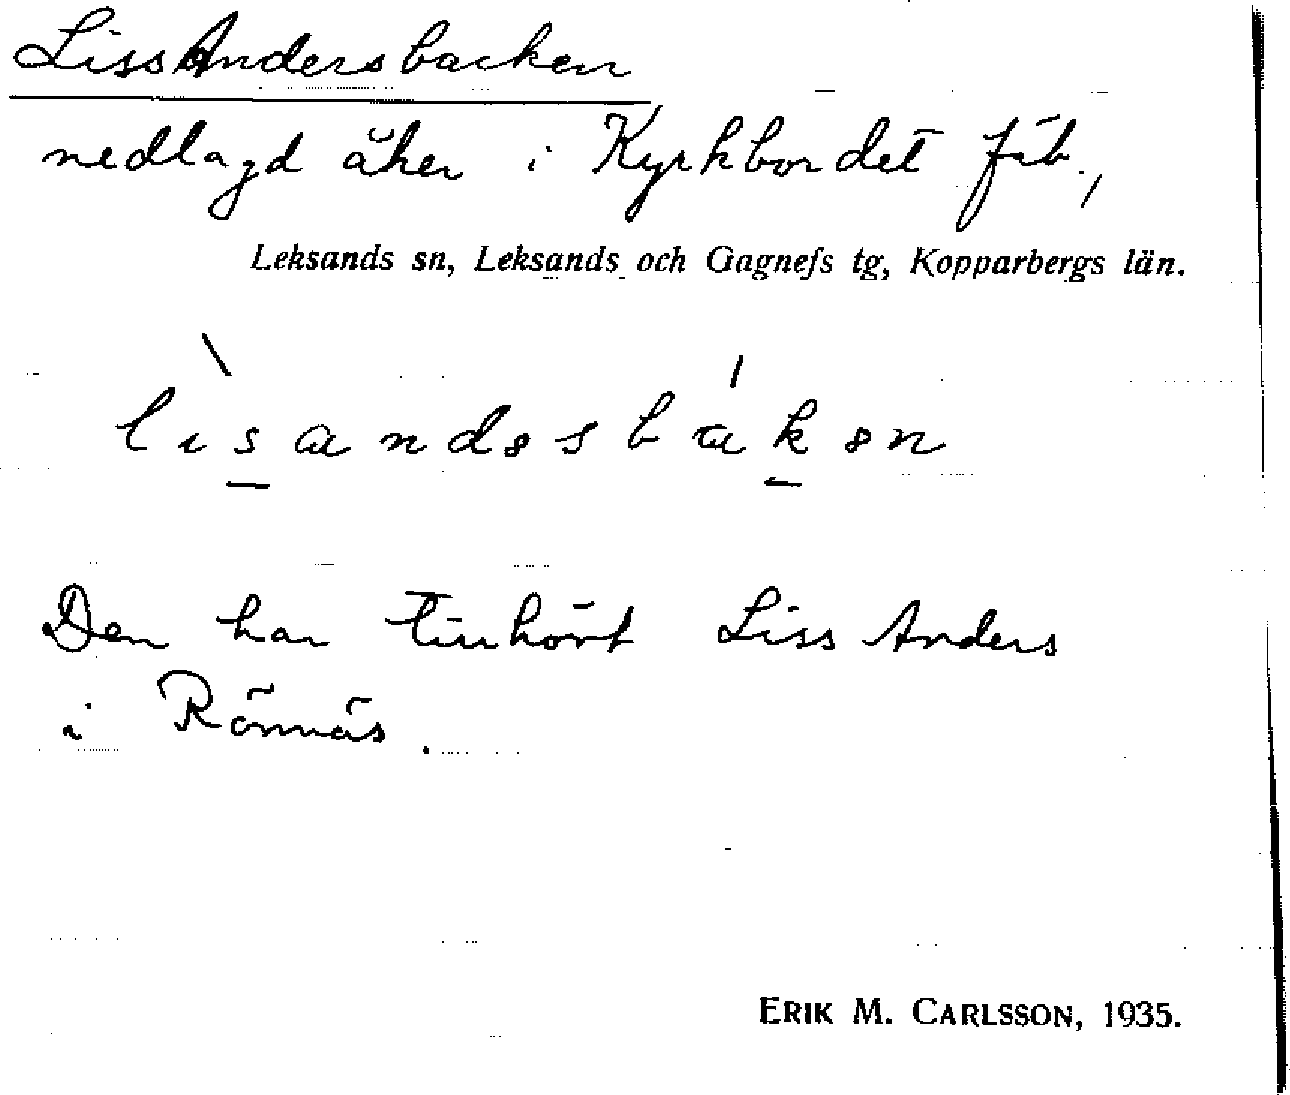 LissAndersbacken
nedlagd åker i Kyrkbordet fäb.,
Leksands sn, Leksands och Gagnefs tg, Kopparbergs län.
lisandəsbakən
Den har tillhört Liss Anders
i Rönnäs.
ERIK M. CARLSSON, 1935.